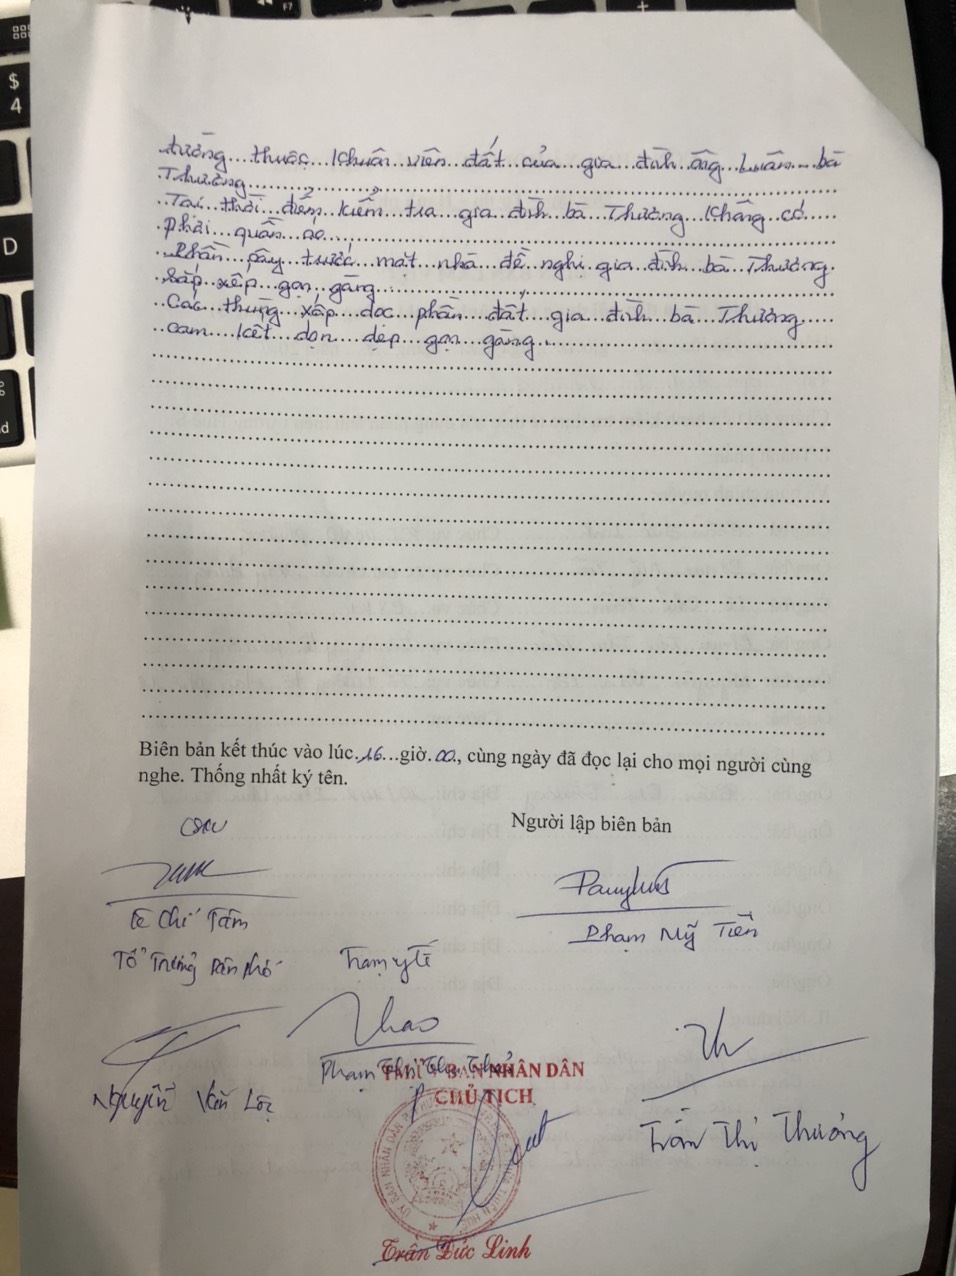 tường thuộc khuôn viên đất của gia đình ông Luân bà
Thương
Tại thời điểm kiểm tra gia đình bà Thương không có
phơi quần áo
Phần pây trước mặt nhà đề nghị gia đình bà Thương
sắp xếp gọn gàng
Các thùng xốp dọc phần đất gia đình bà Thương
cam kết dọn dẹp gọn gàng.
Biên bản kết thúc vào lúc 16 giờ 00, cùng ngày đã đọc lại cho mọi người cùng
nghe. Thống nhất ký tên.
CSKV
Người lập biên bản
Lê Chí Tâm
Phạm Mỹ Tiên
Tổ Trưởng Dân phố
Trạm y tế
Thao
Nguyễn Văn Lộc
Phạm Thị Thảo
TM. ỦY BAN NHÂN DÂN
CHỦ TỊCH
Trần Thị Thương
ỦY BAN NHÂN DÂN
Trần Đức Linh